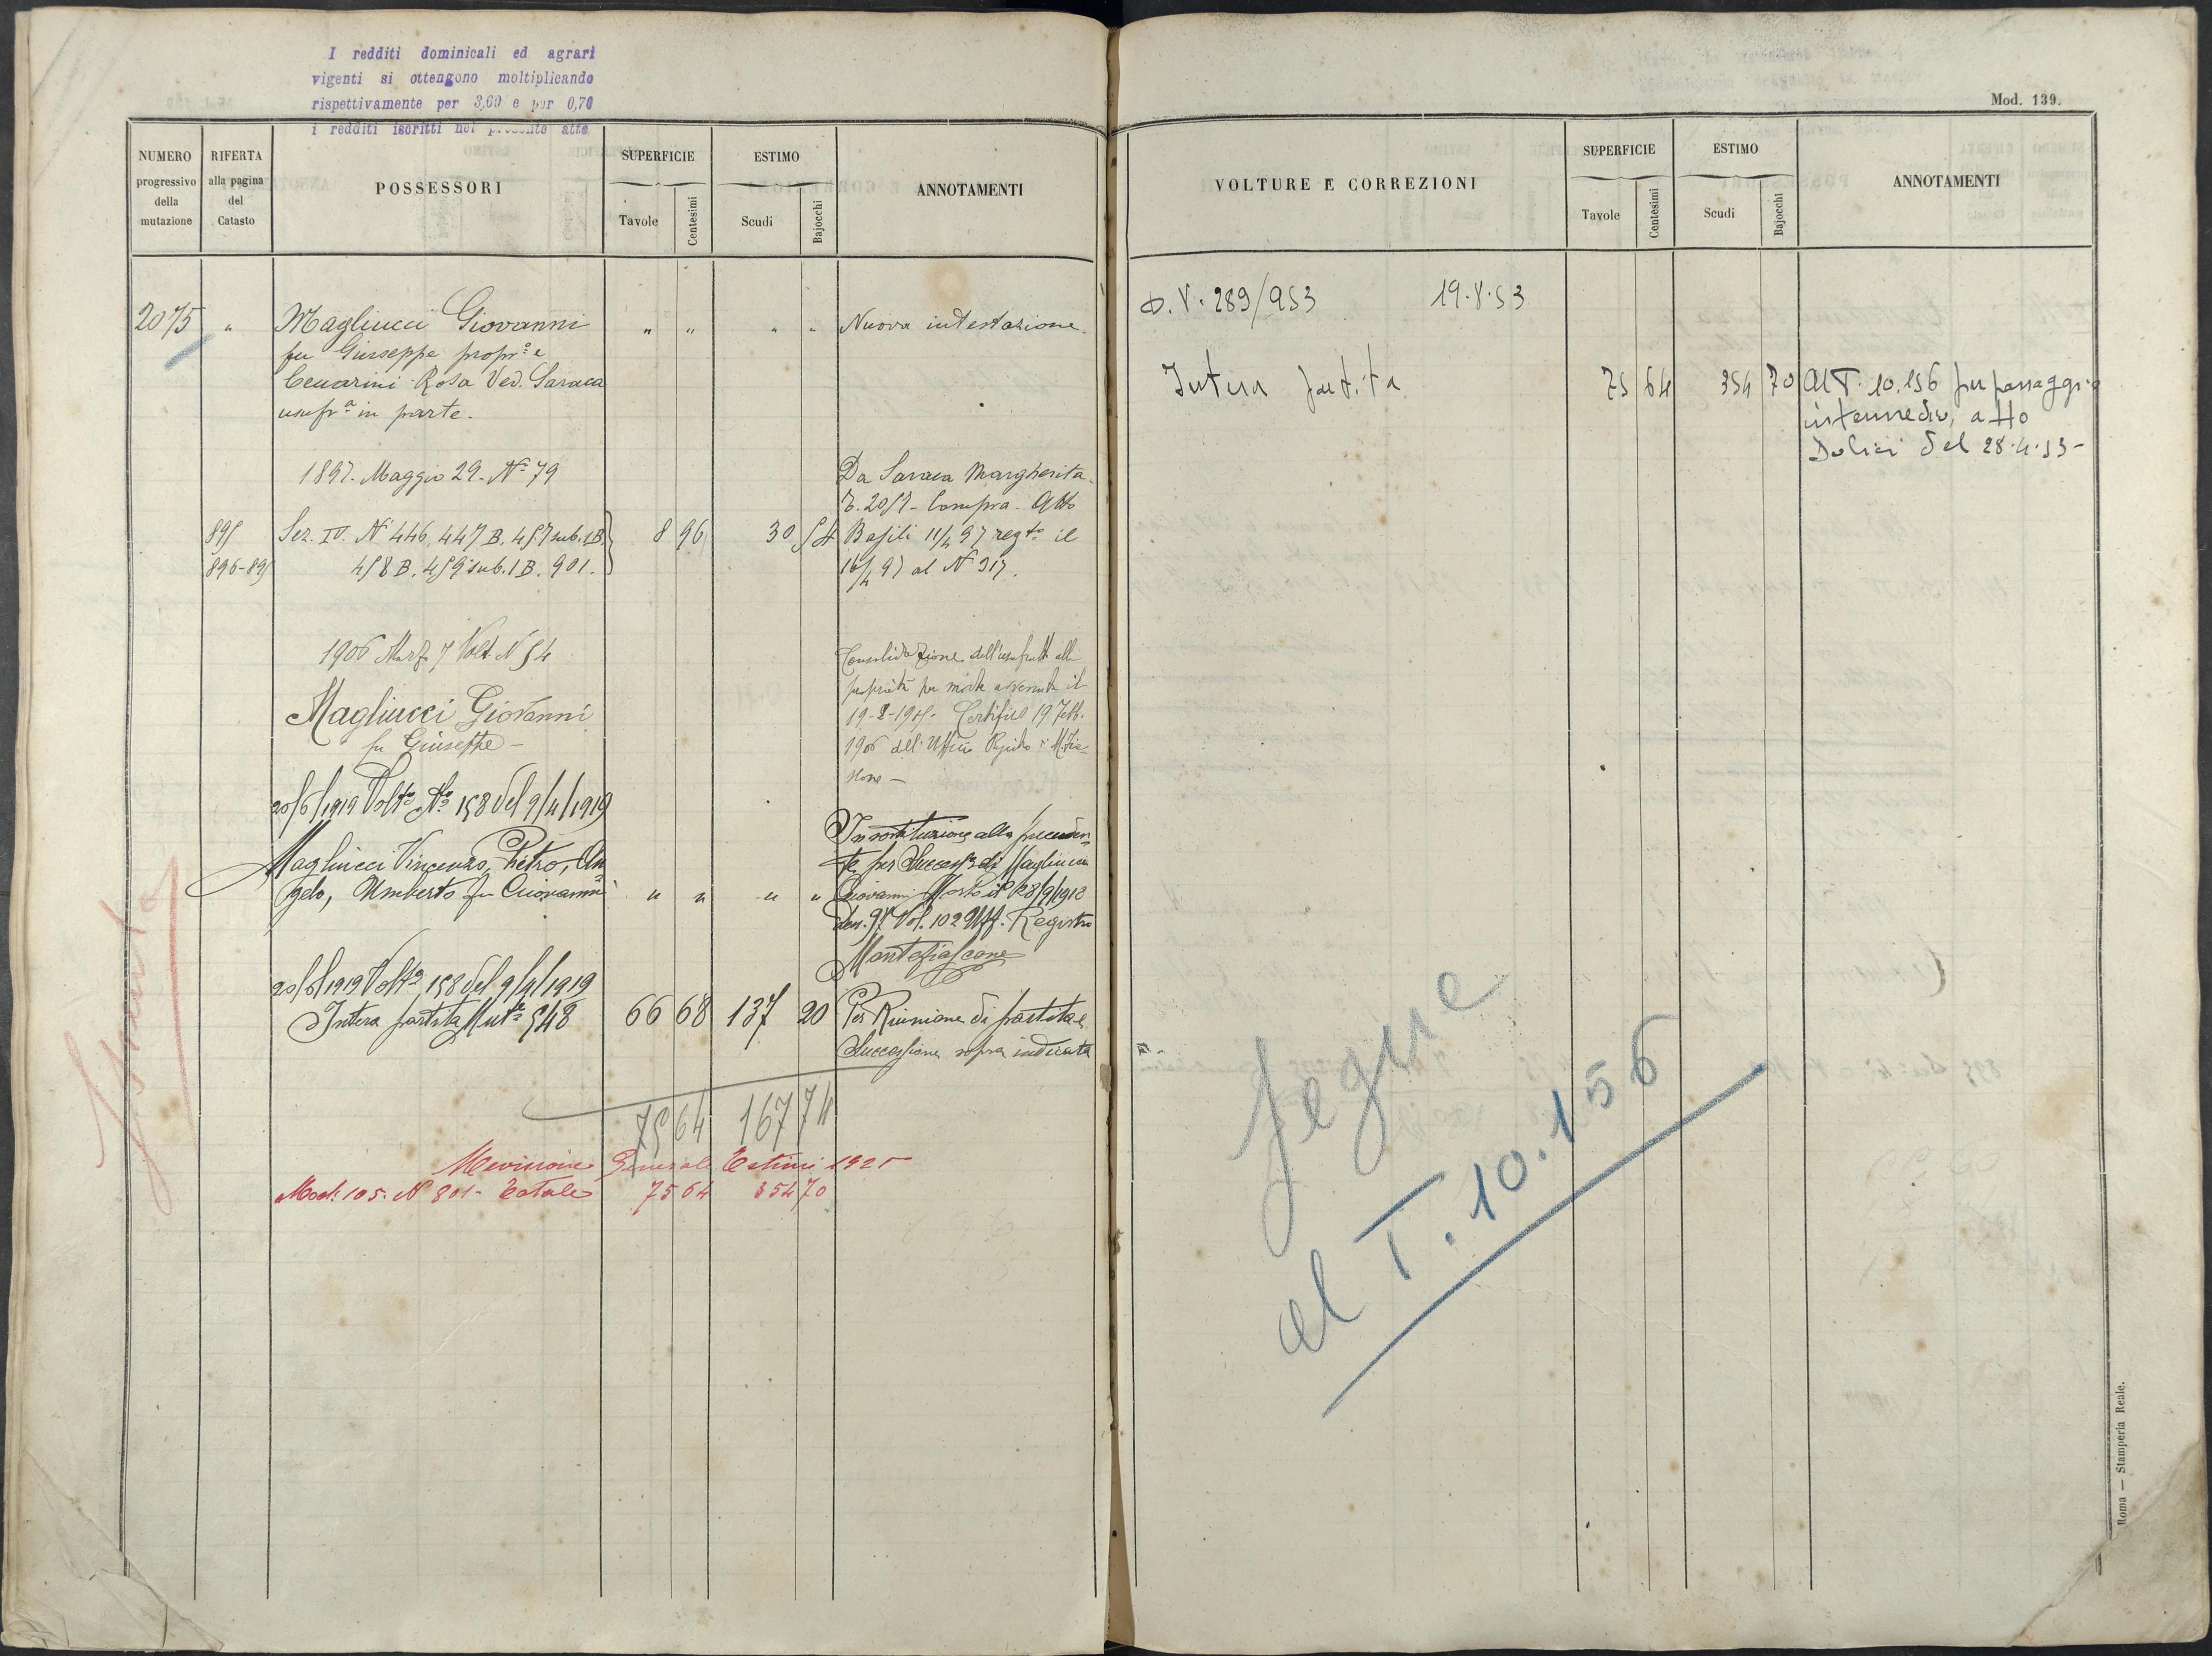 I redditi dominicali ed agrari
vigenti si ottengono moltiplicando
rispettivamente per 3,60 e per 0,70
i redditi iscritti nel presente atto
NUMERO
progressivo
della
mutazione
RIFERTA
alla pagina
del
Catasto
POSSESSORI
SUPERFICIE
Tavole
Centesimi
ESTIMO
Scudi
Bajocchi
ANNOTAMENTI
2075 " Magliucci Giovanni " " " " Nuova intestazione.
fu Giuseppe propr.º e
Rosa Ved. Saraca
usufr.ª in parte.
1897. Maggio 29. Nº 79
Da Saraca Margherita.
T. 2057 - Compra - Atto
895 Sez. IV. Nº 446, 447 B. 457 sub. 1 B. 8 96 30 54 Basili 11/4 97 reg.to il
896-895 458 B. 459 sub. 1 B. 901. 16/4 97 al Nº 317.
1906 Marz. 7 Volt. N 54
Magliucci Giovanni
fu Giuseppe -
Consolidazione dell'usufrutto alla
proprietà per morte avvenuta il
Certific. 19 Febb.
1906 dell'Ufficio Registro
20/6/1919 Volt.ª Nº 158 del 9/4/1919
Magliucci Vincenzo, Pietro, An
gelo, Umberto fu Giovanni " " " "
In sostituzione alla preceden
te per Success.e di Magliucci
Giovanni Morto il 28/9/1918
den. 97 Vol. 102 Uff. Registro
Montefiascone
20/6/1919 Volt.ª 158 del 9/4/1919
Intera partita Mut.e 548 66 68 137 20 Per Riunione di partita e
Successione sopra indicata
75 64 167 74
Revisione Generale Estimi 1925
Mod. 105. N 801 - Totale 75 64 354 70
Mod. 139.
VOLTURE E CORREZIONI
SUPERFICIE
Tavole
Centesimi
ESTIMO
Scudi
Bajocchi
ANNOTAMENTI
D.V. 289/953 19.8.53
Intera partita 75 64 354 70 Al T. 10.156 per passaggio
intermedio, atto
del 28.4.53 -
Segue
al T. 10.156
Roma — Stamperia Reale.